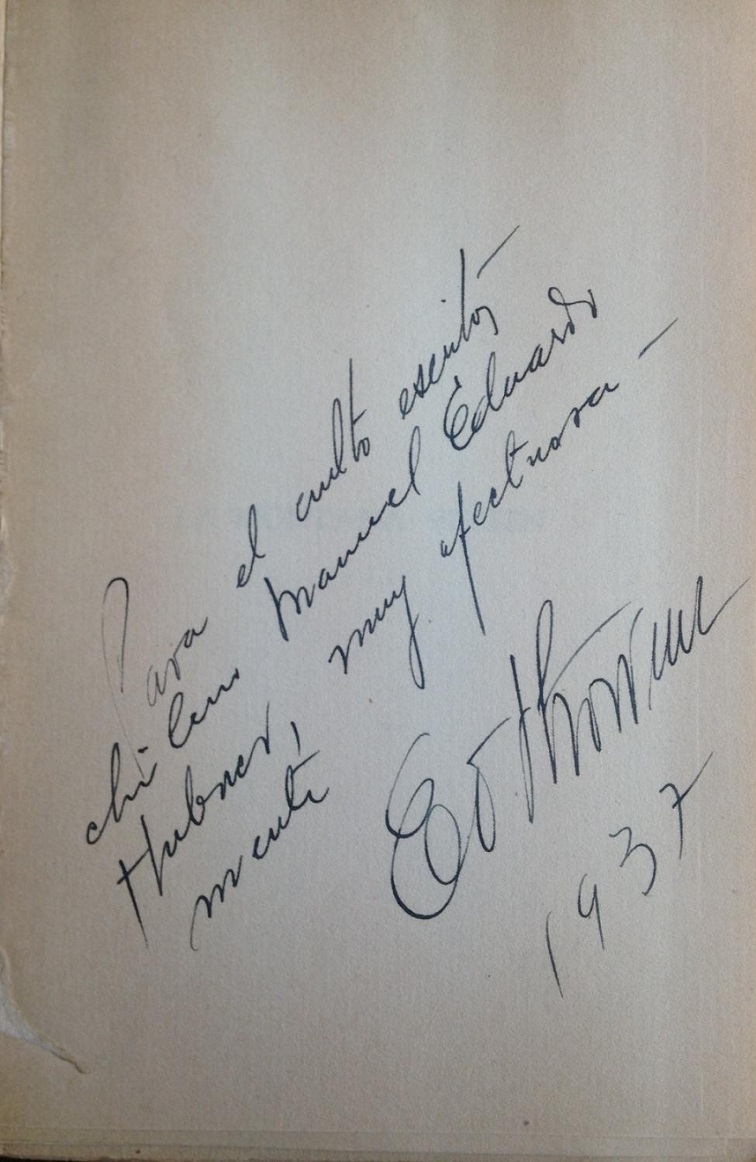 Para el culto escritor
chileno Manuel Eduardo
Hubner, muy afectuosa-
mente
1937